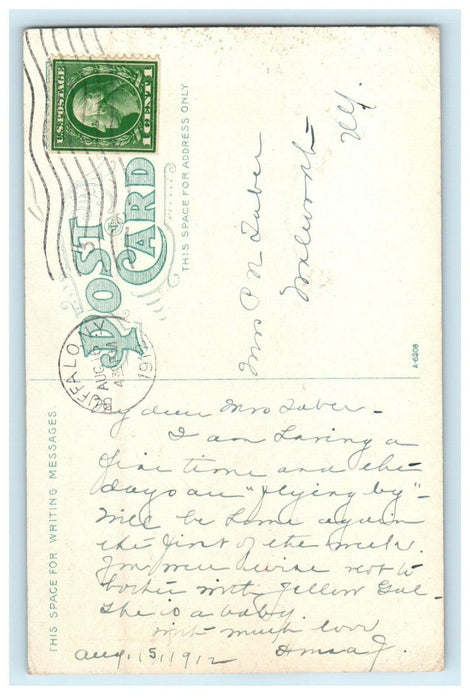 U.S. POSTAGE
1 CENT 1
POST CARD
THIS SPACE FOR ADDRESS ONLY
BUFFALO, N.Y.
AUG
Mrs P N Taber
Walworth
N.Y.
A-6208
THIS SPACE FOR WRITING MESSAGES
My dear Mrs Taber -
I am having a
fine time and the
days are "flying by" -
Will be home again
the first of the week.
You were wise not to
bother with Yellow Gal -
She is a baby.
with much love
Aug. 15, 1912